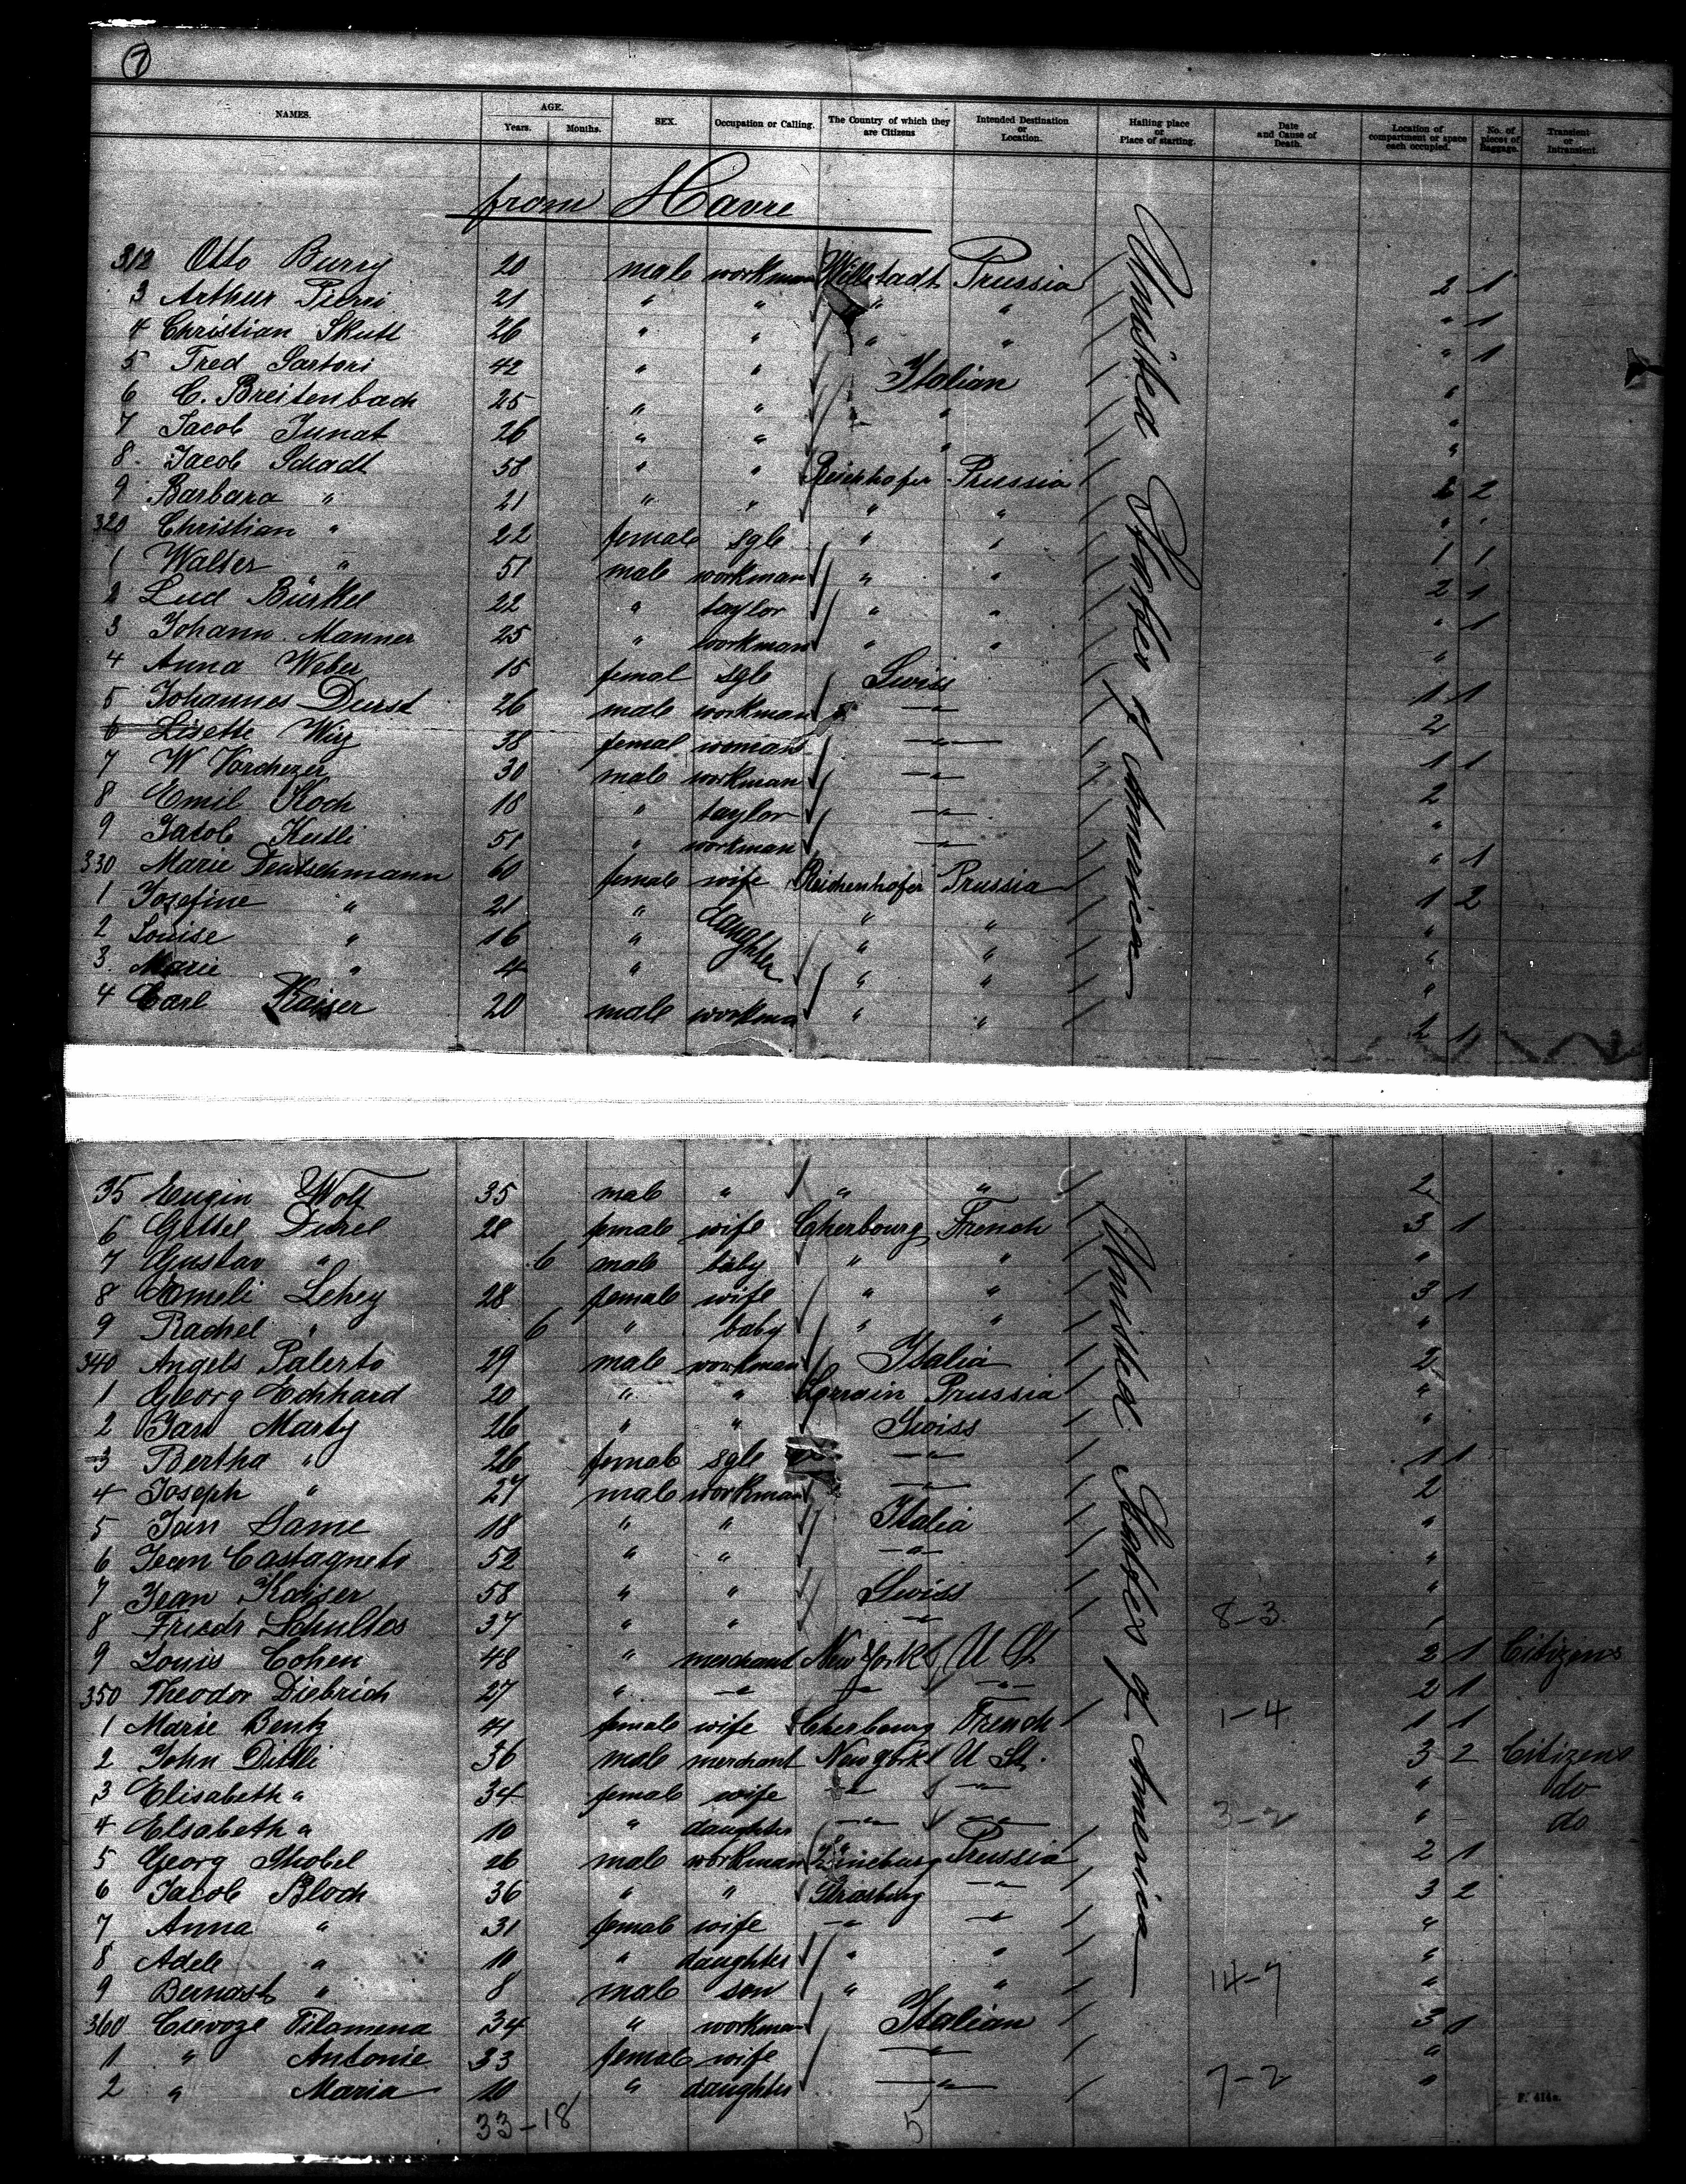 7
NAMES. AGE. Years. Months. SEX. Occupation or Calling. The Country of which they are Citizens Intended Destination or Location. Hailing place or Place of starting. Date and Cause of Death. Location of compartment or space each occupied. No. of pieces of Baggage. Transient or Intransient.
from Havre
312 Otto Burry 20 male workman Willstadt Prussia 2 1
3 Arthur Pierri 21 " " " " " 1
4 Christian Skutt 26 " " " " " 1
5 Fred Sartori 42 " " Italian "
6 C. Breitenbach 25 " " " "
7 Jacob Junat 26 " " " "
8 Jacob Schadt 58 " " Prussia 2
9 Barbara " 21 " " " " " "
320 Christian " 22 female sgle " " 1 1
1 Walter " 51 male workman " " 2 1
2 Lud Bürkel 22 " taylor " " " 1
3 Johann Manner 25 " workman " " "
4 Anna Weber 15 femal sgle Swiss 1 1
5 Johannes Durst 26 male workman —"— 2
6 Lisette Wirz 38 femal woman —"— 1 1
7 W 30 male workman —"— 2
8 Emil Koch 18 " taylor —"— "
9 Jacob Kusli 51 " workman —"— " 1
330 Marie Deutschmann 60 female wife Reichenhofer Prussia 1 2
1 Josefine " 21 " daughter " " "
2 Louise " 16 " " " "
3 Marie " 4 " " " "
4 Carl Kaiser 20 male workma " " 2 1
United States of America
35 Eugin Wolf 35 male " " " 2
6 Gittel Durel 28 female wife Cherbourg French 3 1
7 Gustav " 6 male baby " " "
8 Emeli Lehey 28 female wife " " 3 1
9 Rachel " 6 " baby " " "
340 Angels Palerto 29 male workman Italia 2
1 Georg Eckhard 20 " " Lorrain Prussia "
2 Jan Marty 26 " " Swiss "
3 Bertha " 26 female sgle —"— 1 1
4 Joseph " 27 male workman —"— 2
5 Jan Same 18 " " Italia "
6 Jean Castagneto 52 " " —"— "
7 Jean Kaiser 58 " " Swiss "
8 Friedr Schultos 37 " " —"— 8-3 "
9 Louis Cohen 48 " merchant New York U St 2 1 Citizens
350 Theodor Diebrich 27 " —"— —"— —"— 2 1
1 Marie Bentz 41 female wife Cherbourg French 1-4 1 1
2 John Dittli 36 male merchant New York U St. 3 2 Citizens
3 Elisabeth " 34 female wife —"— —"— " do
4 Elsabeth " 10 " daughter —"— —"— 3-2 " do
5 Georg Strobel 26 male workman Lüneburg Prussia 2 1
6 Jacob Bloch 36 " " Strasburg —"— 3 2
7 Anna " 31 female wife —"— —"— "
8 Adele " 10 " daughter " " "
9 Bernard " 8 male son " " 14-7 "
360 Filomena 34 " workman Italian 3 1
1 " Antonie 33 female wife —"— "
2 " Maria 10 " daughter —"— 7-2 "
United States of America
33-18 5